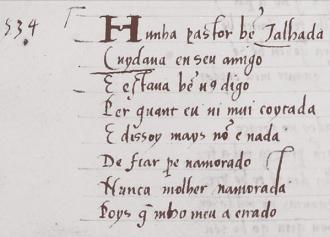 534
Hunha pastor bẽ Talhada
Cuydaua en seu amigo
E estaua bẽ uꝯ digo
Per quant eu ui mui coytada
E dissoy mays nõ e nada
De fiar pe namorado
Nunca molher namorada
Poys q̃ mho meu a errado